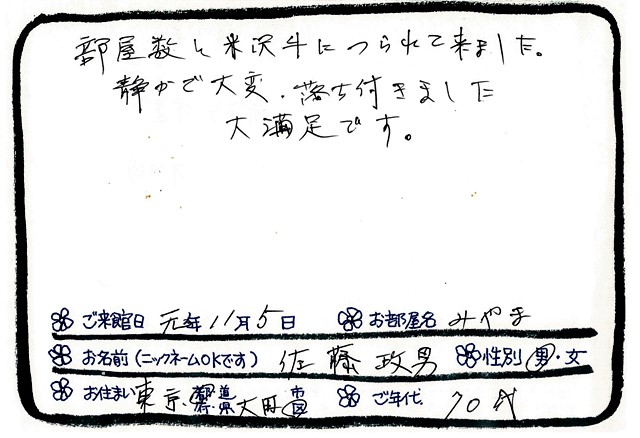 部屋数と米沢牛につられて来ました。
静かで大変、落ち付きました
大満足です。
ご来館日 元年11月5日 お部屋名 みやま
お名前(ニックネームOKです) 佐藤政男 性別 男・女
お住まい 東京 都道府・県 大田 市区 ご年代 70代